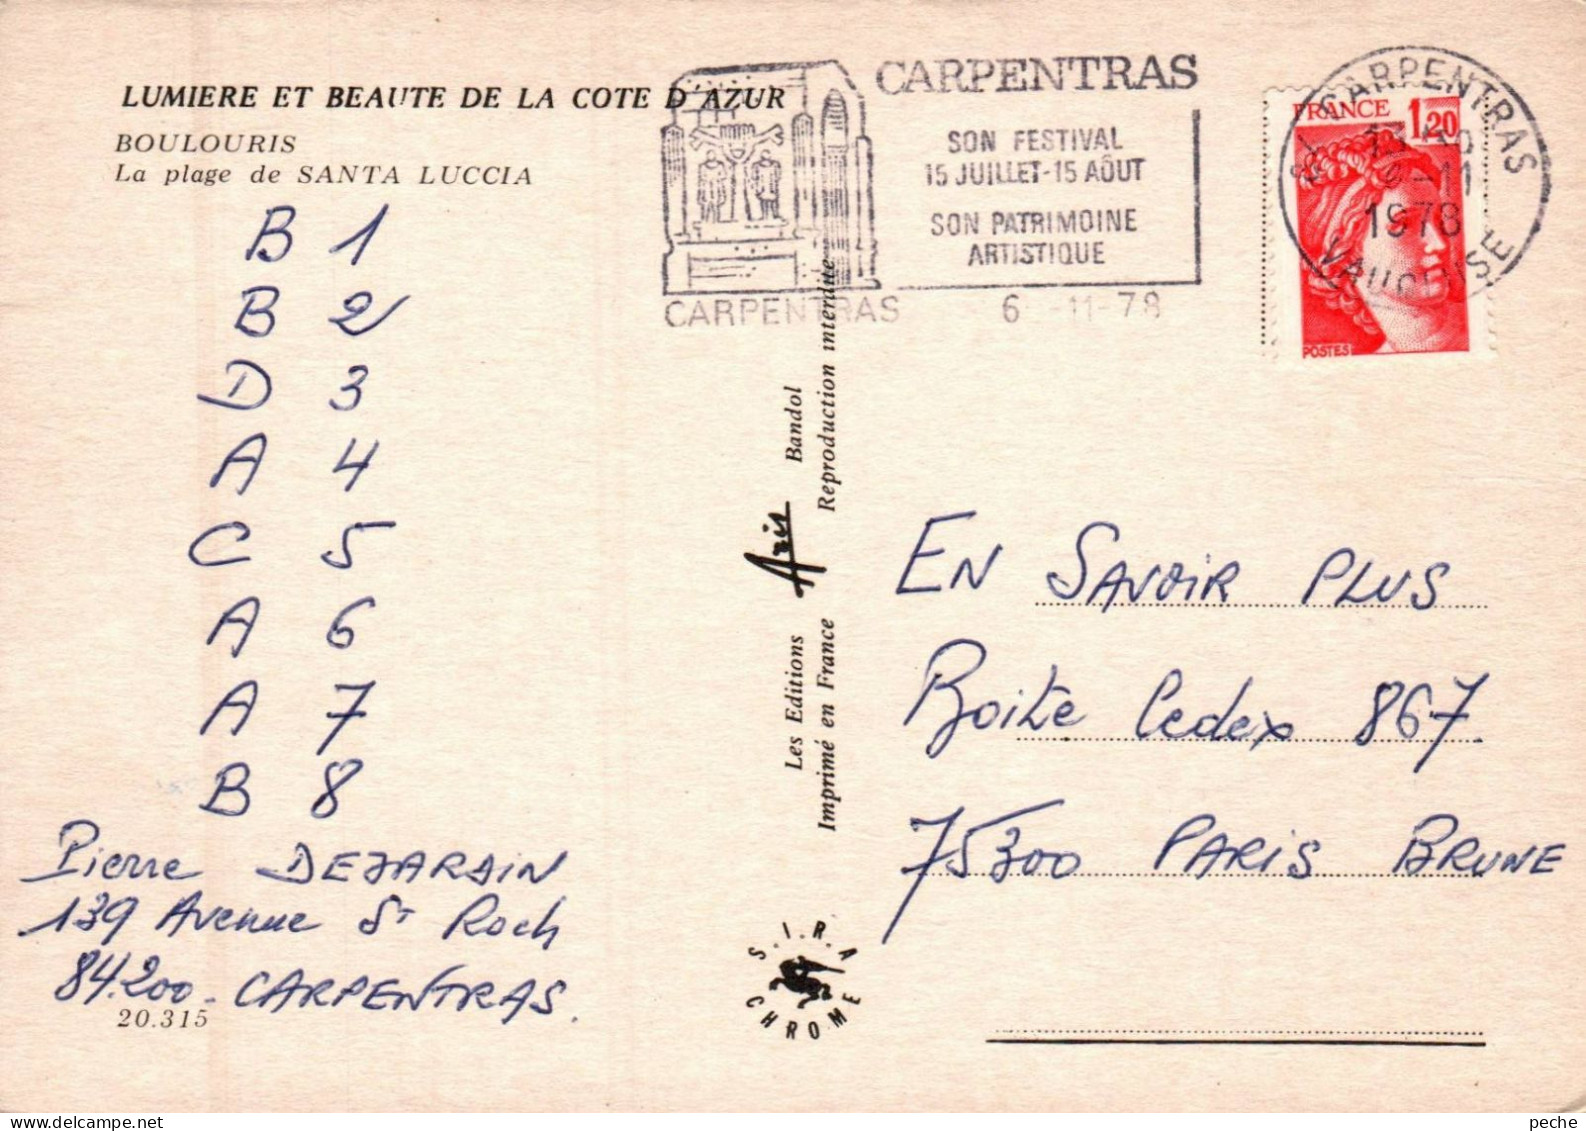 LUMIERE ET BEAUTE DE LA COTE D'AZUR
BOULOURIS
La plage de SANTA LUCCIA
B 1
B 2
D 3
A 4
C 5
A 6
A 7
B 8
Pierre DEJARDIN
139 Avenue St Roch
84.200 - CARPENTRAS.
20.315
CARPENTRAS
SON FESTIVAL
15 JUILLET-15 AÔUT
SON PATRIMOINE
ARTISTIQUE
CARPENTRAS 6 -11-78
84 CARPENTRAS
-11
1978
VAUCLUSE
FRANCE 1,20
POSTES
Les Editions Aris Bandol
Imprimé en France Reproduction interdite
S.I.R.A
CHROME
EN SAVOIR PLUS
Boite Cedex 867
75300 PARIS BRUNE
peche